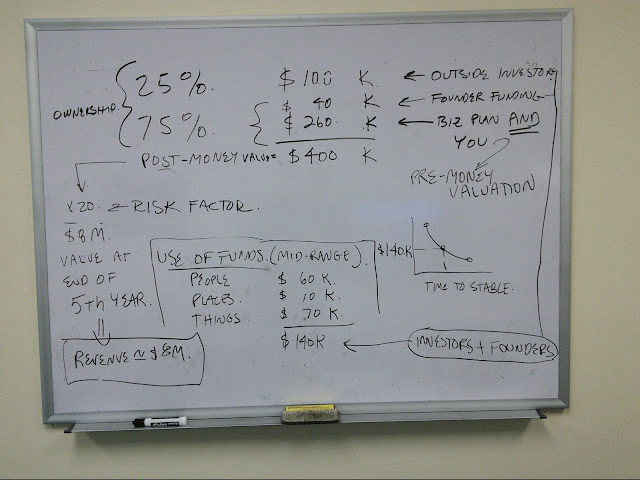 25%. $100 K ← OUTSIDE INVESTORS
OWNERSHIP. $ 40 K ← FOUNDER FUNDING
75%. $260. K ← BIZ PLAN AND
YOU
POST-MONEY VALUE = $400 K
PRE-MONEY
VALUATION
X20. ← RISK FACTOR.
$8M.
VALUE AT
END OF
5TH YEAR.
REVENUE ≈ $8M.
USE OF FUNDS. (MID-RANGE).
PEOPLE $ 60 K.
PLACES. $ 10 K.
THINGS. $ 70 K.
$140K
$140K
TIME TO STABLE.
INVESTORS + FOUNDERS